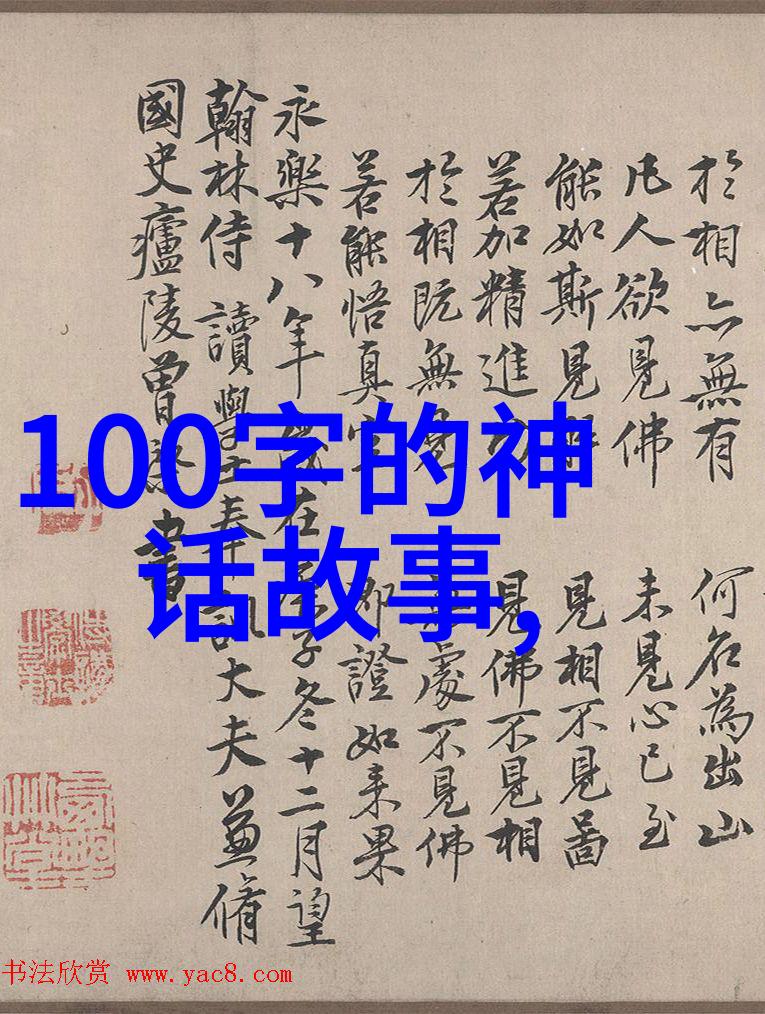 於相亦無有 何名為出山
凡人欲見佛 未見心已至
能如斯見解 見相不見啚
若加精進 見佛不見相
於相既無見 無處不見佛
若能悟真空 即證如来果
永樂十八年歲在庚子冬十二月望
翰林侍讀學士奉訓大夫兼脩
國史廬陵曾棨書
100字的神
话故事,
书法欣赏 www.yac8.com